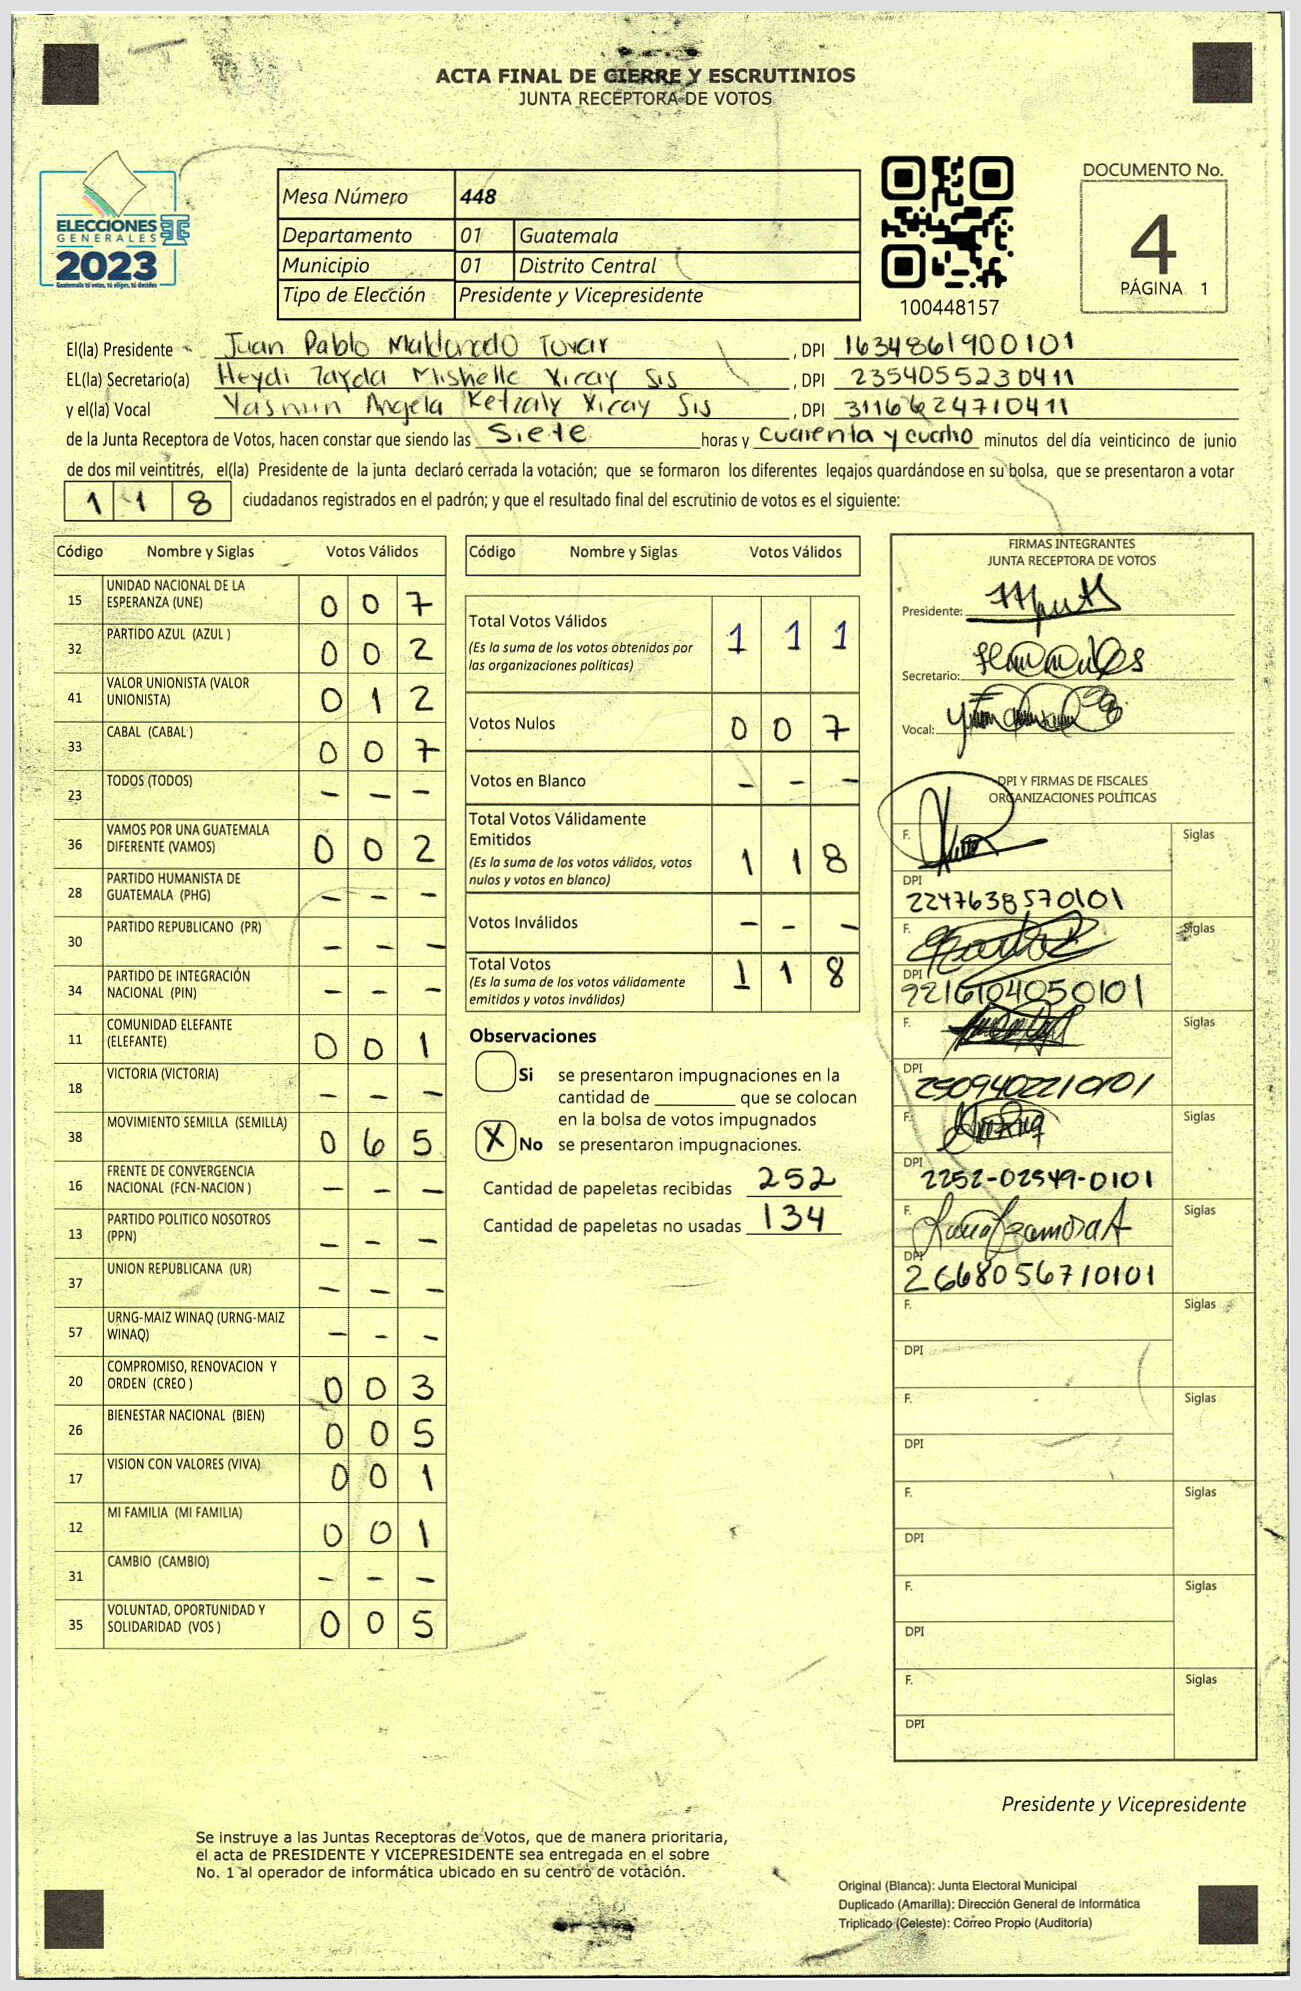 ACTA FINAL DE CIERRE Y ESCRUTINIOS
JUNTA RECEPTORA DE VOTOS
ELECCIONES
GENERALES
2023
Guatemala tú votas, tú eliges, tú decides
Mesa Número 448
Departamento 01 Guatemala
Municipio 01 Distrito Central
Tipo de Elección Presidente y Vicepresidente
100448157
DOCUMENTO No.
4
PÁGINA 1
El(la) Presidente Juan Pablo Maldonado Tovar, DPI 1634861900101
EL(la) Secretario(a) Heydi Zayda Mishelle Xicay Sis, DPI 2354055230411
y el(la) Vocal Yasmin Angela Ketzaly Xicay Sis, DPI 3116624710411
de la Junta Receptora de Votos, hacen constar que siendo las Siete horas y cuarenta y cuatro minutos del día veinticinco de junio
de dos mil veintitrés, el(la) Presidente de la junta declaró cerrada la votación; que se formaron los diferentes legajos quardándose en su bolsa, que se presentaron a votar
1 1 8 ciudadanos registrados en el padrón; y que el resultado final del escrutinio de votos es el siguiente:
Código Nombre y Siglas Votos Válidos
15 UNIDAD NACIONAL DE LA
ESPERANZA (UNE) 0 0 7
32 PARTIDO AZUL (AZUL ) 0 0 2
41 VALOR UNIONISTA (VALOR
UNIONISTA) 0 1 2
33 CABAL (CABAL ) 0 0 7
23 TODOS (TODOS) - - -
36 VAMOS POR UNA GUATEMALA
DIFERENTE (VAMOS) 0 0 2
28 PARTIDO HUMANISTA DE
GUATEMALA (PHG) - - -
30 PARTIDO REPUBLICANO (PR) - - -
34 PARTIDO DE INTEGRACIÓN
NACIONAL (PIN) - - -
11 COMUNIDAD ELEFANTE
(ELEFANTE) 0 0 1
18 VICTORIA (VICTORIA) - - -
38 MOVIMIENTO SEMILLA (SEMILLA) 0 6 5
16 FRENTE DE CONVERGENCIA
NACIONAL (FCN-NACION ) - - -
13 PARTIDO POLITICO NOSOTROS
(PPN) - - -
37 UNION REPUBLICANA (UR) - - -
57 URNG-MAIZ WINAQ (URNG-MAIZ
WINAQ) - - -
20 COMPROMISO, RENOVACION Y
ORDEN (CREO ) 0 0 3
26 BIENESTAR NACIONAL (BIEN) 0 0 5
17 VISION CON VALORES (VIVA) 0 0 1
12 MI FAMILIA (MI FAMILIA) 0 0 1
31 CAMBIO (CAMBIO) - - -
35 VOLUNTAD, OPORTUNIDAD Y
SOLIDARIDAD (VOS ) 0 0 5
Código Nombre y Siglas Votos Válidos
Total Votos Válidos 1 1 1
(Es la suma de los votos obtenidos por
las organizaciones políticas)
Votos Nulos 0 0 7
Votos en Blanco - - -
Total Votos Válidamente
Emitidos 1 1 8
(Es la suma de los votos válidos, votos
nulos y votos en blanco)
Votos Inválidos - - -
Total Votos 1 1 8
(Es la suma de los votos válidamente
emitidos y votos inválidos)
Observaciones
Si se presentaron impugnaciones en la
cantidad de ________ que se colocan
en la bolsa de votos impugnados
X No se presentaron impugnaciones.
Cantidad de papeletas recibidas 252
Cantidad de papeletas no usadas 134
FIRMAS INTEGRANTES
JUNTA RECEPTORA DE VOTOS
Presidente:
Secretario:
Vocal:
DPI Y FIRMAS DE FISCALES
ORGANIZACIONES POLÍTICAS
F. Siglas
DPI
2247638570101
F. Siglas
DPI
F. Siglas
DPI
2509402210101
F. Siglas
DPI
2252-02549-0101
F. Siglas
DPI
2668056710101
F. Siglas
DPI
F. Siglas
DPI
F. Siglas
DPI
F. Siglas
DPI
F. Siglas
DPI
Presidente y Vicepresidente
Se instruye a las Juntas Receptoras de Votos, que de manera prioritaria,
el acta de PRESIDENTE Y VICEPRESIDENTE sea entregada en el sobre
No. 1 al operador de informática ubicado en su centro de votación.
Original (Blanca): Junta Electoral Municipal
Duplicado (Amarilla): Dirección General de Informática
Triplicado (Celeste): Correo Propio (Auditoría)